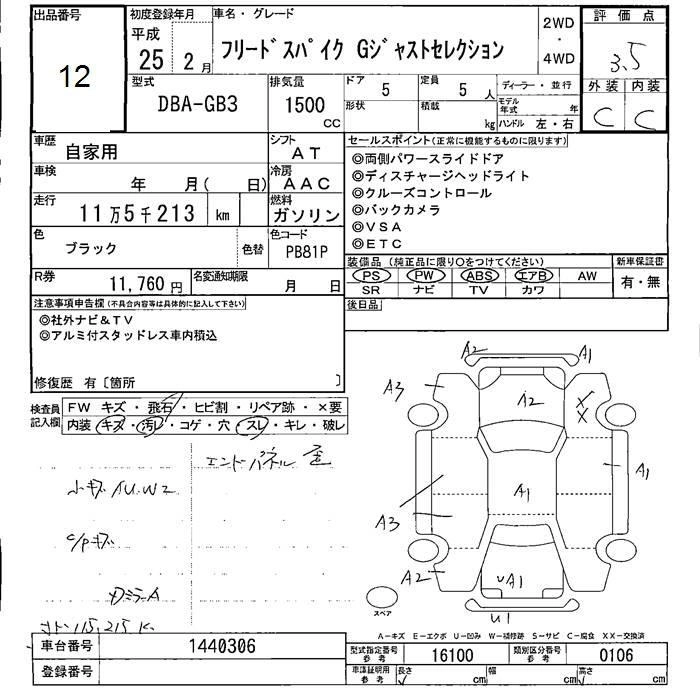 出品番号
12
初度登録年月
平成
25 2月
車名・グレード
フリードスパイク Gジャストセレクション
2WD
・
4WD
評価点
3.5
外装 内装
C C
型式
DBA-GB3
排気量
1500
CC
ドア 5
定員 5 人
形状
積載
kg
ディーラー・並行
モデル年式 年
ハンドル 左・右
車歴
自家用
シフト
AT
車検
年 月( 日)
冷房
AAC
走行
11万5千213 km
燃料
ガソリン
色
ブラック
色替
色コード
PB81P
R券
11,760円
名変通知期限
月 日
セールスポイント(正常に機能するものに限ります)
◎両側パワースライドドア
◎ディスチャージヘッドライト
◎クルーズコントロール
◎バックカメラ
◎VSA
◎ETC
装備品(純正品に限り○をつけてください)
新車保証書
PS PW ABS エアB AW
SR ナビ TV カワ
有・無
後日品
注意事項申告欄(不具合内容等は具体的に記入して下さい)
◎社外ナビ&TV
◎アルミ付スタッドレス車内積込
修復歴 有〔箇所 〕
検査員
記入欄
FW キズ・飛石・ヒビ割・リペア跡・×要
内装 キズ・汚レ・コゲ・穴・スレ・キレ・破レ
エンドパネル 歪
小キズAU.W2
C/Pキズ
115,215K
A2 A1
A3 A2 X X
A1 A1
A3
A2 UA1
U1
スペア
A-キズ E-エクボ U-凹み W-補修跡 S-サビ C-腐食 XX-交換済
車台番号 1440306
登録番号
型式指定番号
参考
16100
類別区分番号
参考
0106
車庫証明用
参考
長さ cm 幅 cm 高さ cm